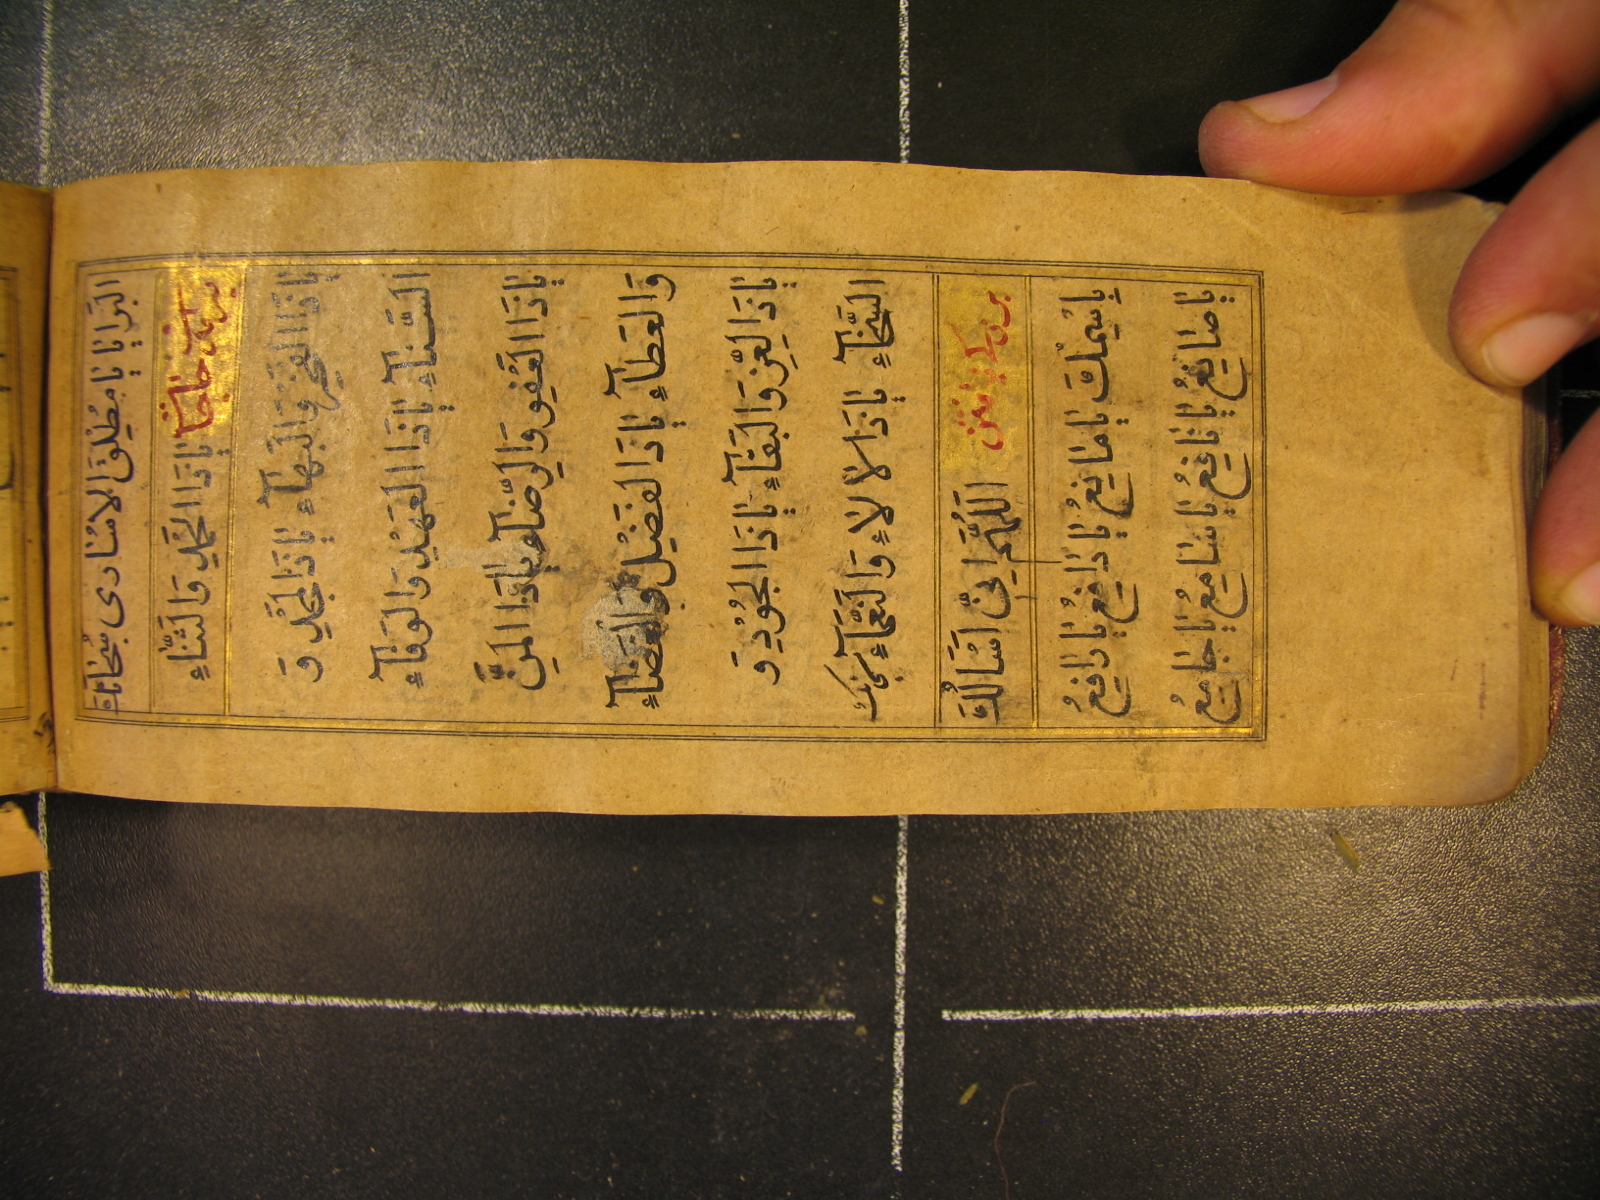 البَرَايَا يَا مُطْلِقَ الاُسَارَى سُبْحَانَكَ
يَاذَا الْحَمْدِ وَالثَّنَاءِ
يَاذَا الْفَخْرِ وَالْبَهَاءِ يَاذَا الْمَجْدِ وَ
السَّنَاءِ يَاذَا الْعَهْدِ وَالْوَفَاءِ
يَاذَا الْعَفْوِ وَالرِّضَاءِ يَاذَا الْمَنِّ
وَالْعَطَاءِ يَاذَا الْفَضْلِ وَالْقَضَاءِ
يَاذَا الْعِزِّ وَالْبَقَاءِ يَاذَا الْجُودِ وَ
السَّخَاءِ يَاذَا الاٰلاَءِ وَالنَّعْمَاءِ سبحانك
اللّٰهُمَّ اِنِّى اَسْاَلُكَ
بِاِسْمِكَ يَا مَانِعُ يَا دَافِعُ يَا رَافِعُ
يَا صَانِعُ يَا نَافِعُ يَا سَامِعُ يَا جَامِعُ